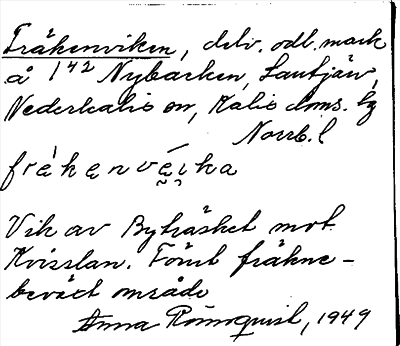 Fräkenviken, delv. odl. mark
å 1⁴² Nybacken, Lantjärv,
Nederkalix sn, Kalix doms. lg
Norrb. l
fräkenvéika
Vik av Byträsket mot
Kvisslan. Förut fräkne-
beväxt område
Anna Rönnquist, 1949